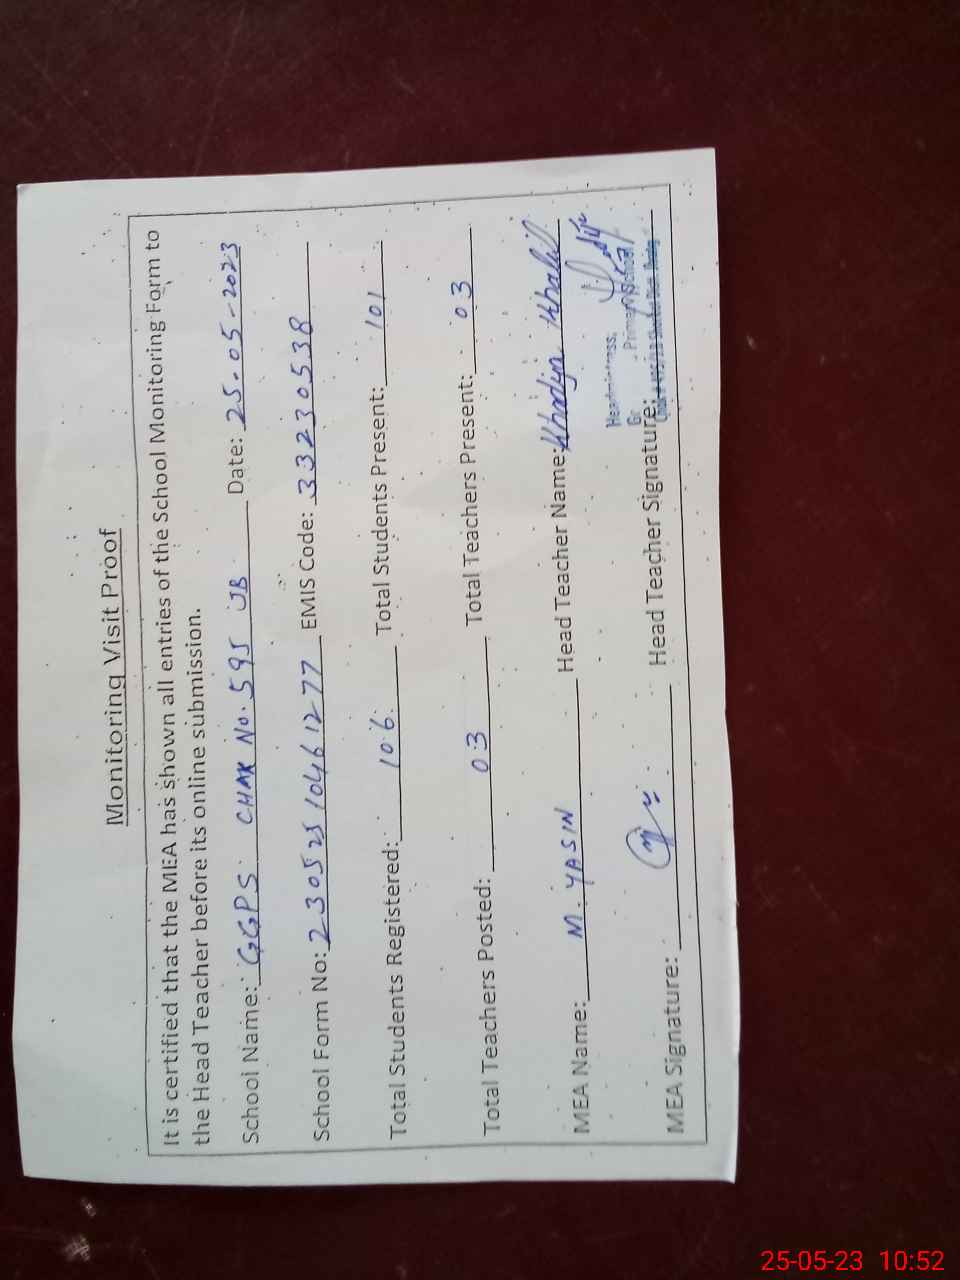 Monitoring Visit Proof
It is certified that the MEA has shown all entries of the School Monitoring Form to
the Head Teacher before its online submission.
School Name: GGPS CHAK No. 595 JB Date: 25-05-2023
School Form No: 23052510461277 EMIS Code: 33230538
Total Students Registered: 106 Total Students Present: 101
Total Teachers Posted: 03 Total Teachers Present: 03
MEA Name: M. YASIN Head Teacher Name: Khadija Khalil
Headmistress,
Primary School
MEA Signature: Head Teacher Signature:
25-05-23 10:52